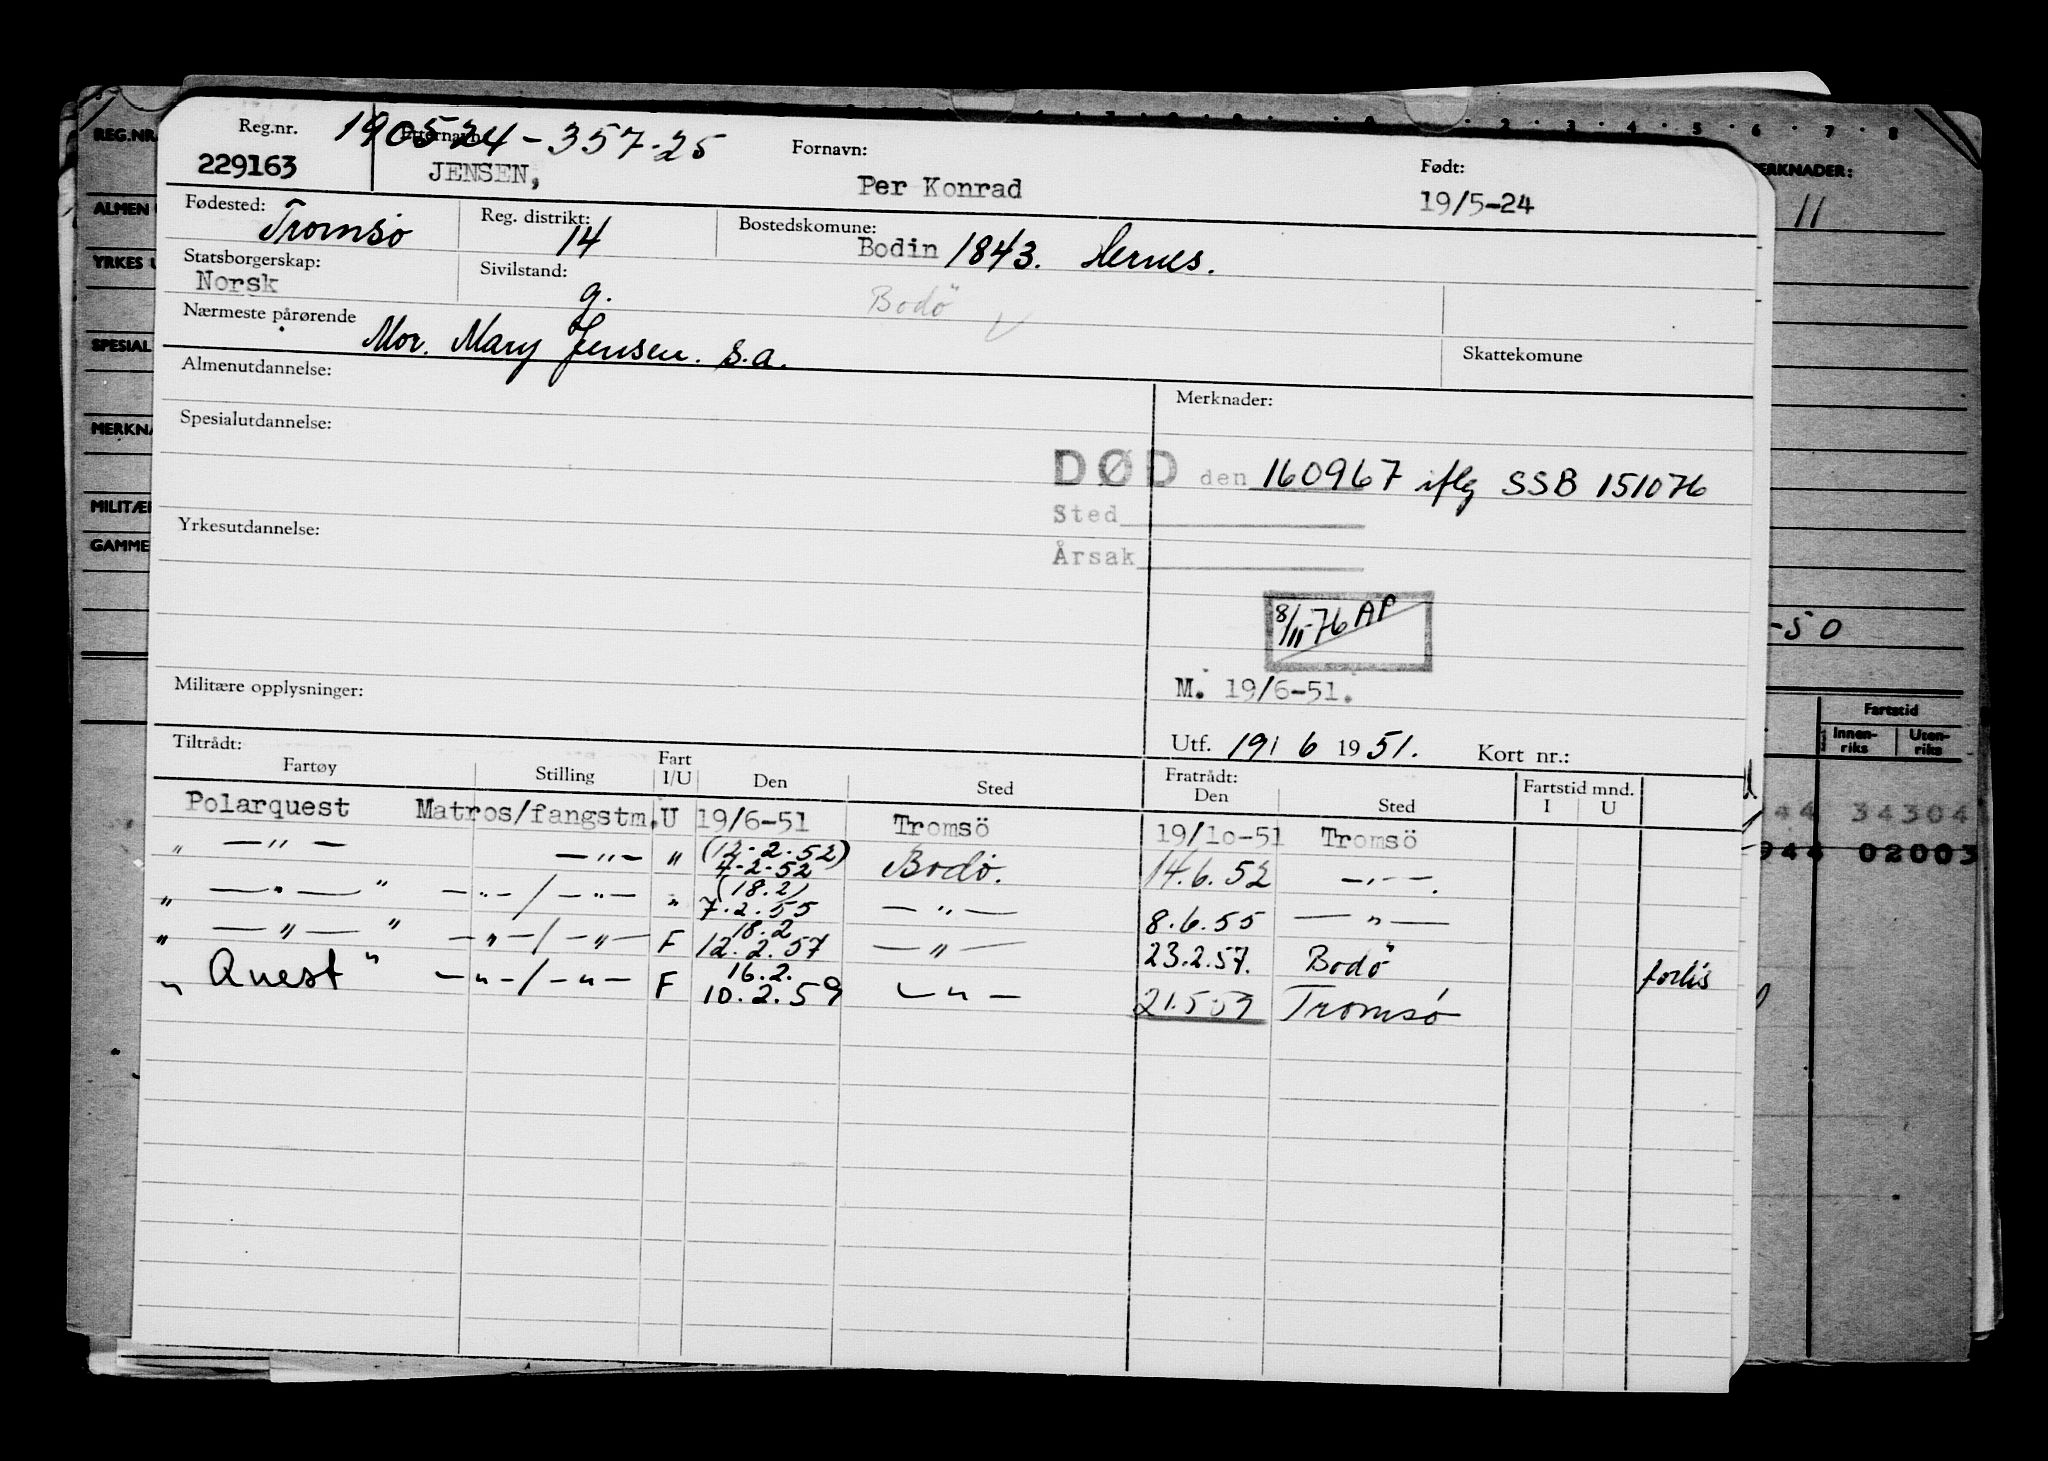 REG.NR.
ALMEN
YRKES U
SPESIAL
MERKNA
MILITÆR
GAMME
Reg.nr. Etternavn: Fornavn: Født:
190524-357-25
229163 JENSEN, Per Konrad 19/5-24
ERKNADER:
11
Fødested: Tromsø Reg. distrikt: 14 Bostedskomune: Bodin 1843. Hernes.
Statsborgerskap: Norsk Sivilstand: g. Bodö
Nærmeste pårørende Mor. Mary Jensen. s.a. Skattekomune
Almenutdannelse: Merknader:
Spesialutdannelse:
DØD den 160967 iflg SSB 151076
Sted
Yrkesutdannelse: Årsak
8/11-76 AP
-50
Militære opplysninger: M. 19/6-51.
Utf. 19/ 6 1951. Kort nr.:
Tiltrådt: Fratrådt:
Fartøy Stilling Fart I/U Den Sted Den Sted Fartstid mnd. I U
Fartstid
Innen-riks Uten-riks
Polarquest Matros/fangstm. U 19/6-51 Tromsö 19/10-51 Tromsö
44 34304
" —"— —"— " (12-2-52) 4-2-52 Bodø. 14.6.52 —"—.
944 02003
" —"— " —"—/—"— " (18.2) 7.2.55 —"— 8.6.55 —"—
" —"— " —"—/—"— F 18.2 12.2.57 —"— 23.2.57. Bodö forlis
" Quest " —"—/—"— F 16.2. 10.2.59 —"— 21.5.59 Tromsø